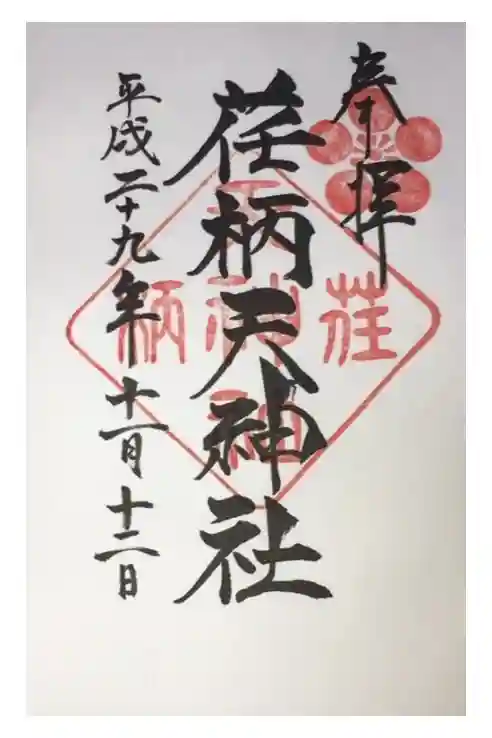 奉拝
荏柄天神社
平成二十九年十一月十二日
荏
柄